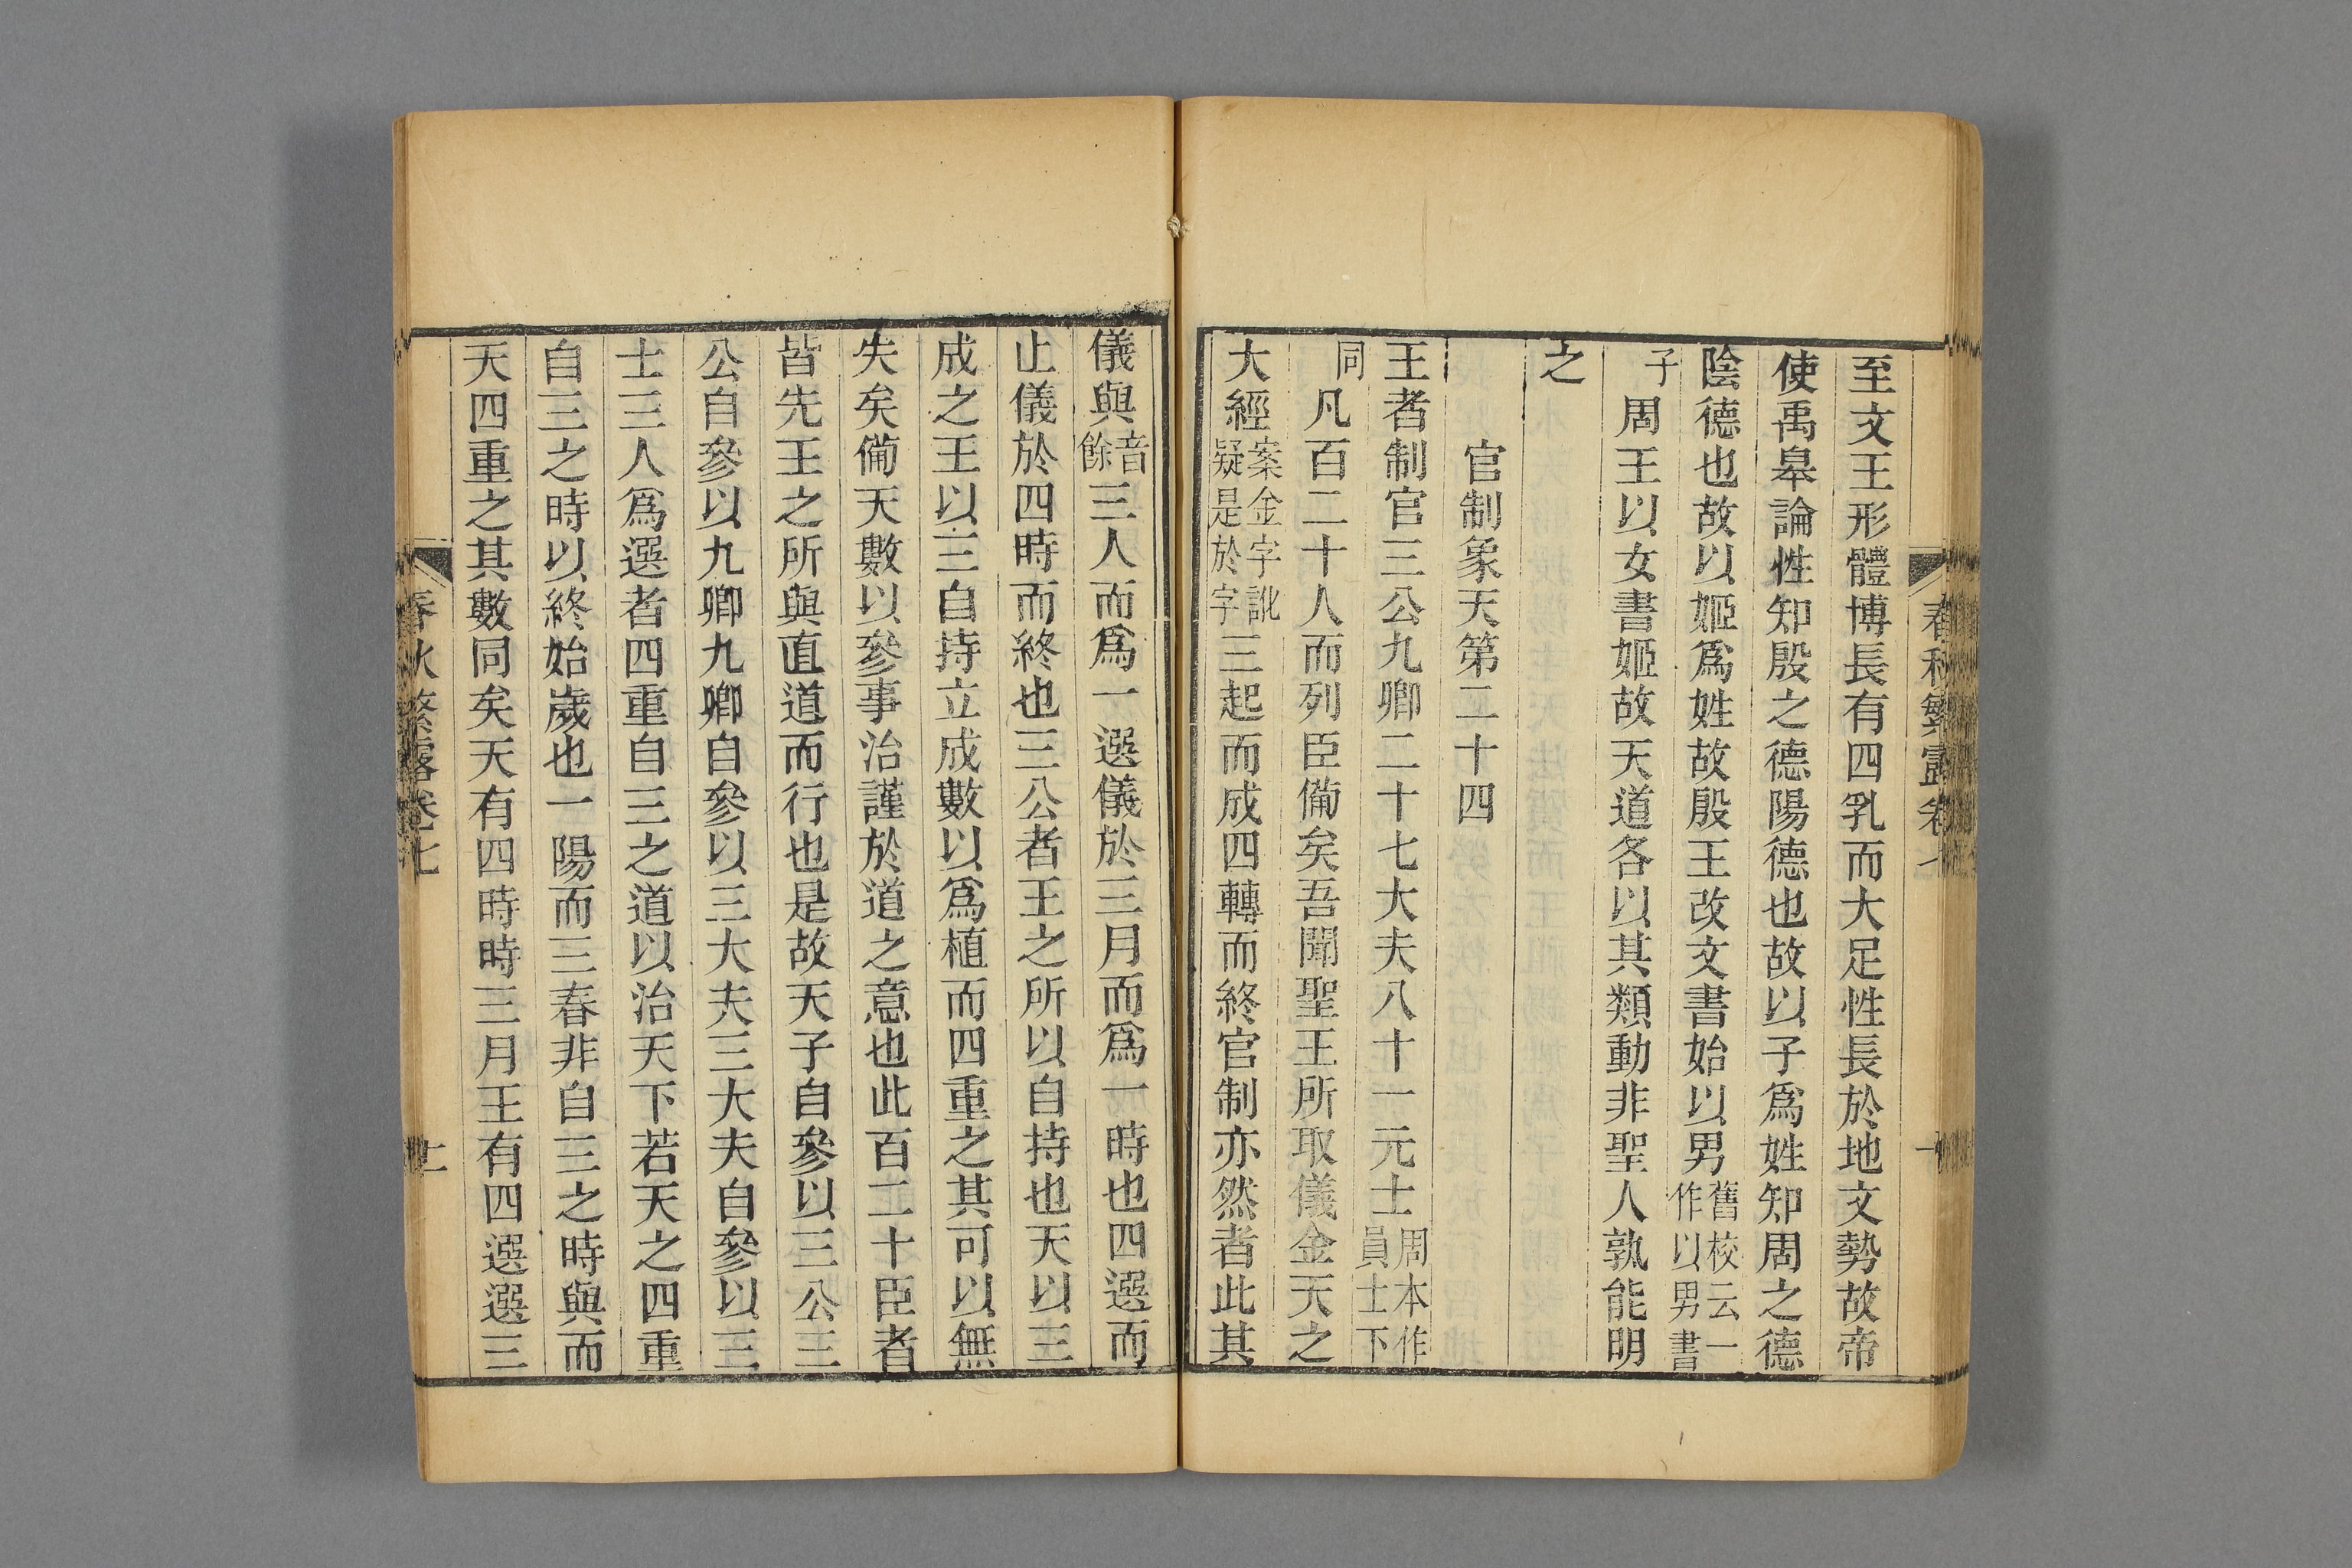 春秋繁露卷七
至文王形體博長有四乳而大足性長於地文勢故帝
使禹皋論性知殷之德陽德也故以子為姓知周之德
陰德也故以姬為姓故殷王改文書始以男舊校云一作以男書
子周王以女書姬故天道各以其類動非聖人孰能明
之
官制象天第二十四
王者制官三公九卿二十七大夫八十一元士周本作員士下
同凡百二十人而列臣備矣吾聞聖王所取儀金天之
大經案金字訛疑是於字三起而成四轉而終官制亦然者此其
儀與音餘三人而爲一選儀於三月而爲一時也四選而
止儀於四時而終也三公者王之所以自持也天以三
成之王以三自持立成數以爲植而四重之其可以無
失矣備天數以參事治謹於道之意也此百二十臣者
皆先王之所與直道而行也是故天子自參以三公三
公自參以九卿九卿自參以三大夫三大夫自參以三
士三人爲選者四重自三之道以治天下若天之四重
自三之時以終始歲也一陽而三春非自三之時與而
天四重之其數同矣天有四時時三月王有四選選三
春秋繁露卷七